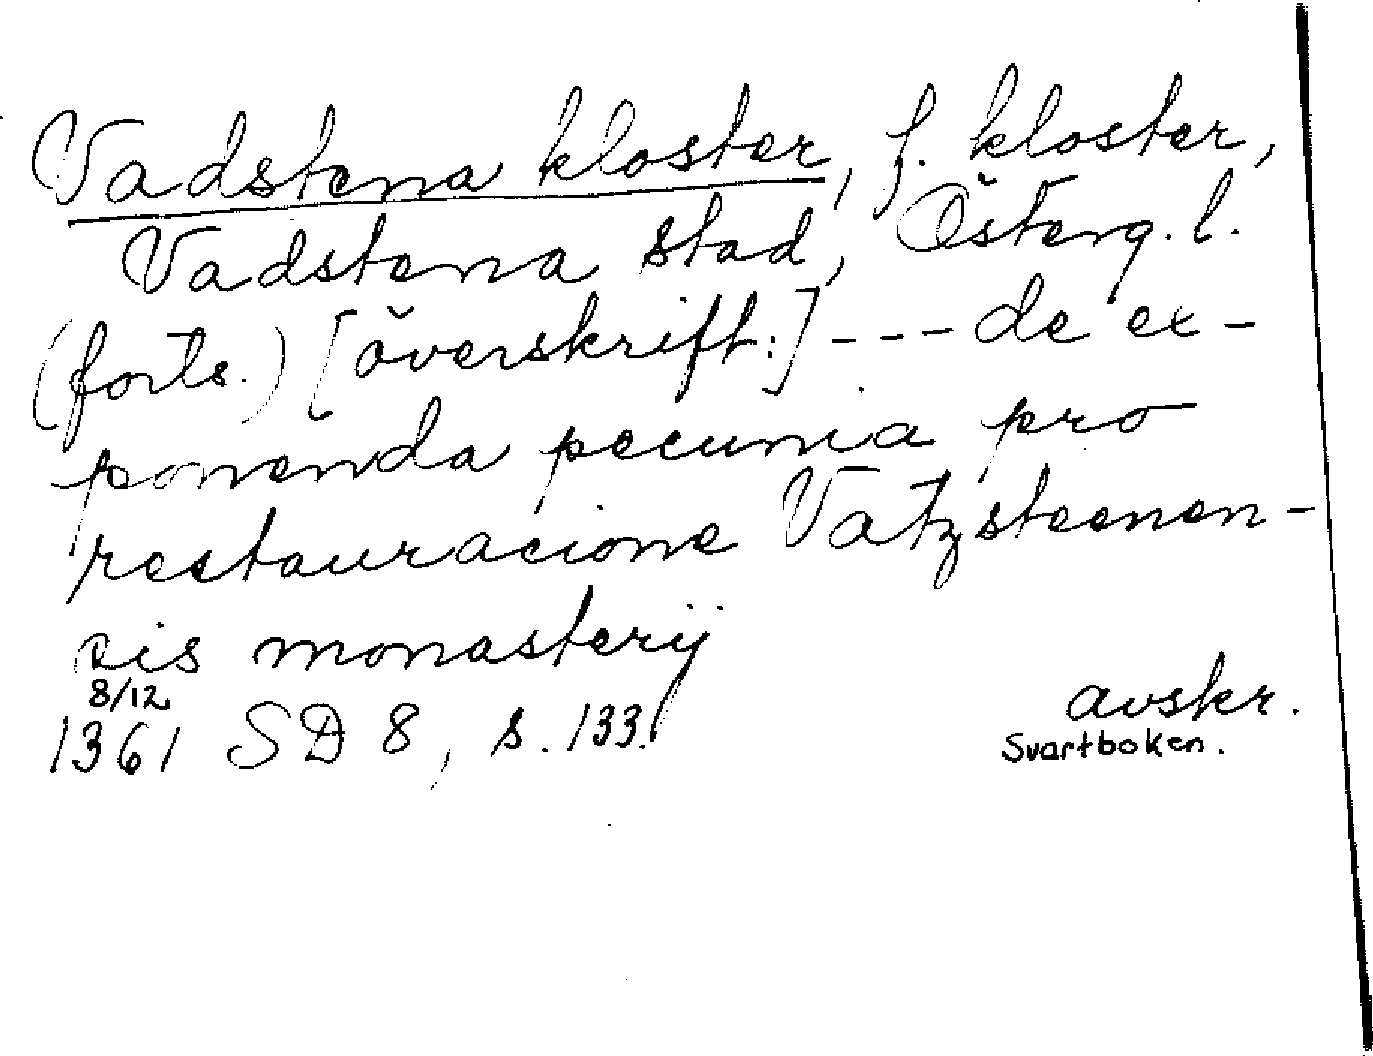 Vadstena kloster, f. kloster,
Vadstena stad, Österg. l.
(forts.) [överskrift:] --- de ex-
ponenda pecunia pro
restauracione Vatzsteenen-
sis monasterij
8/12
1361 SD 8, s. 133.
avskr.
Svartboken.